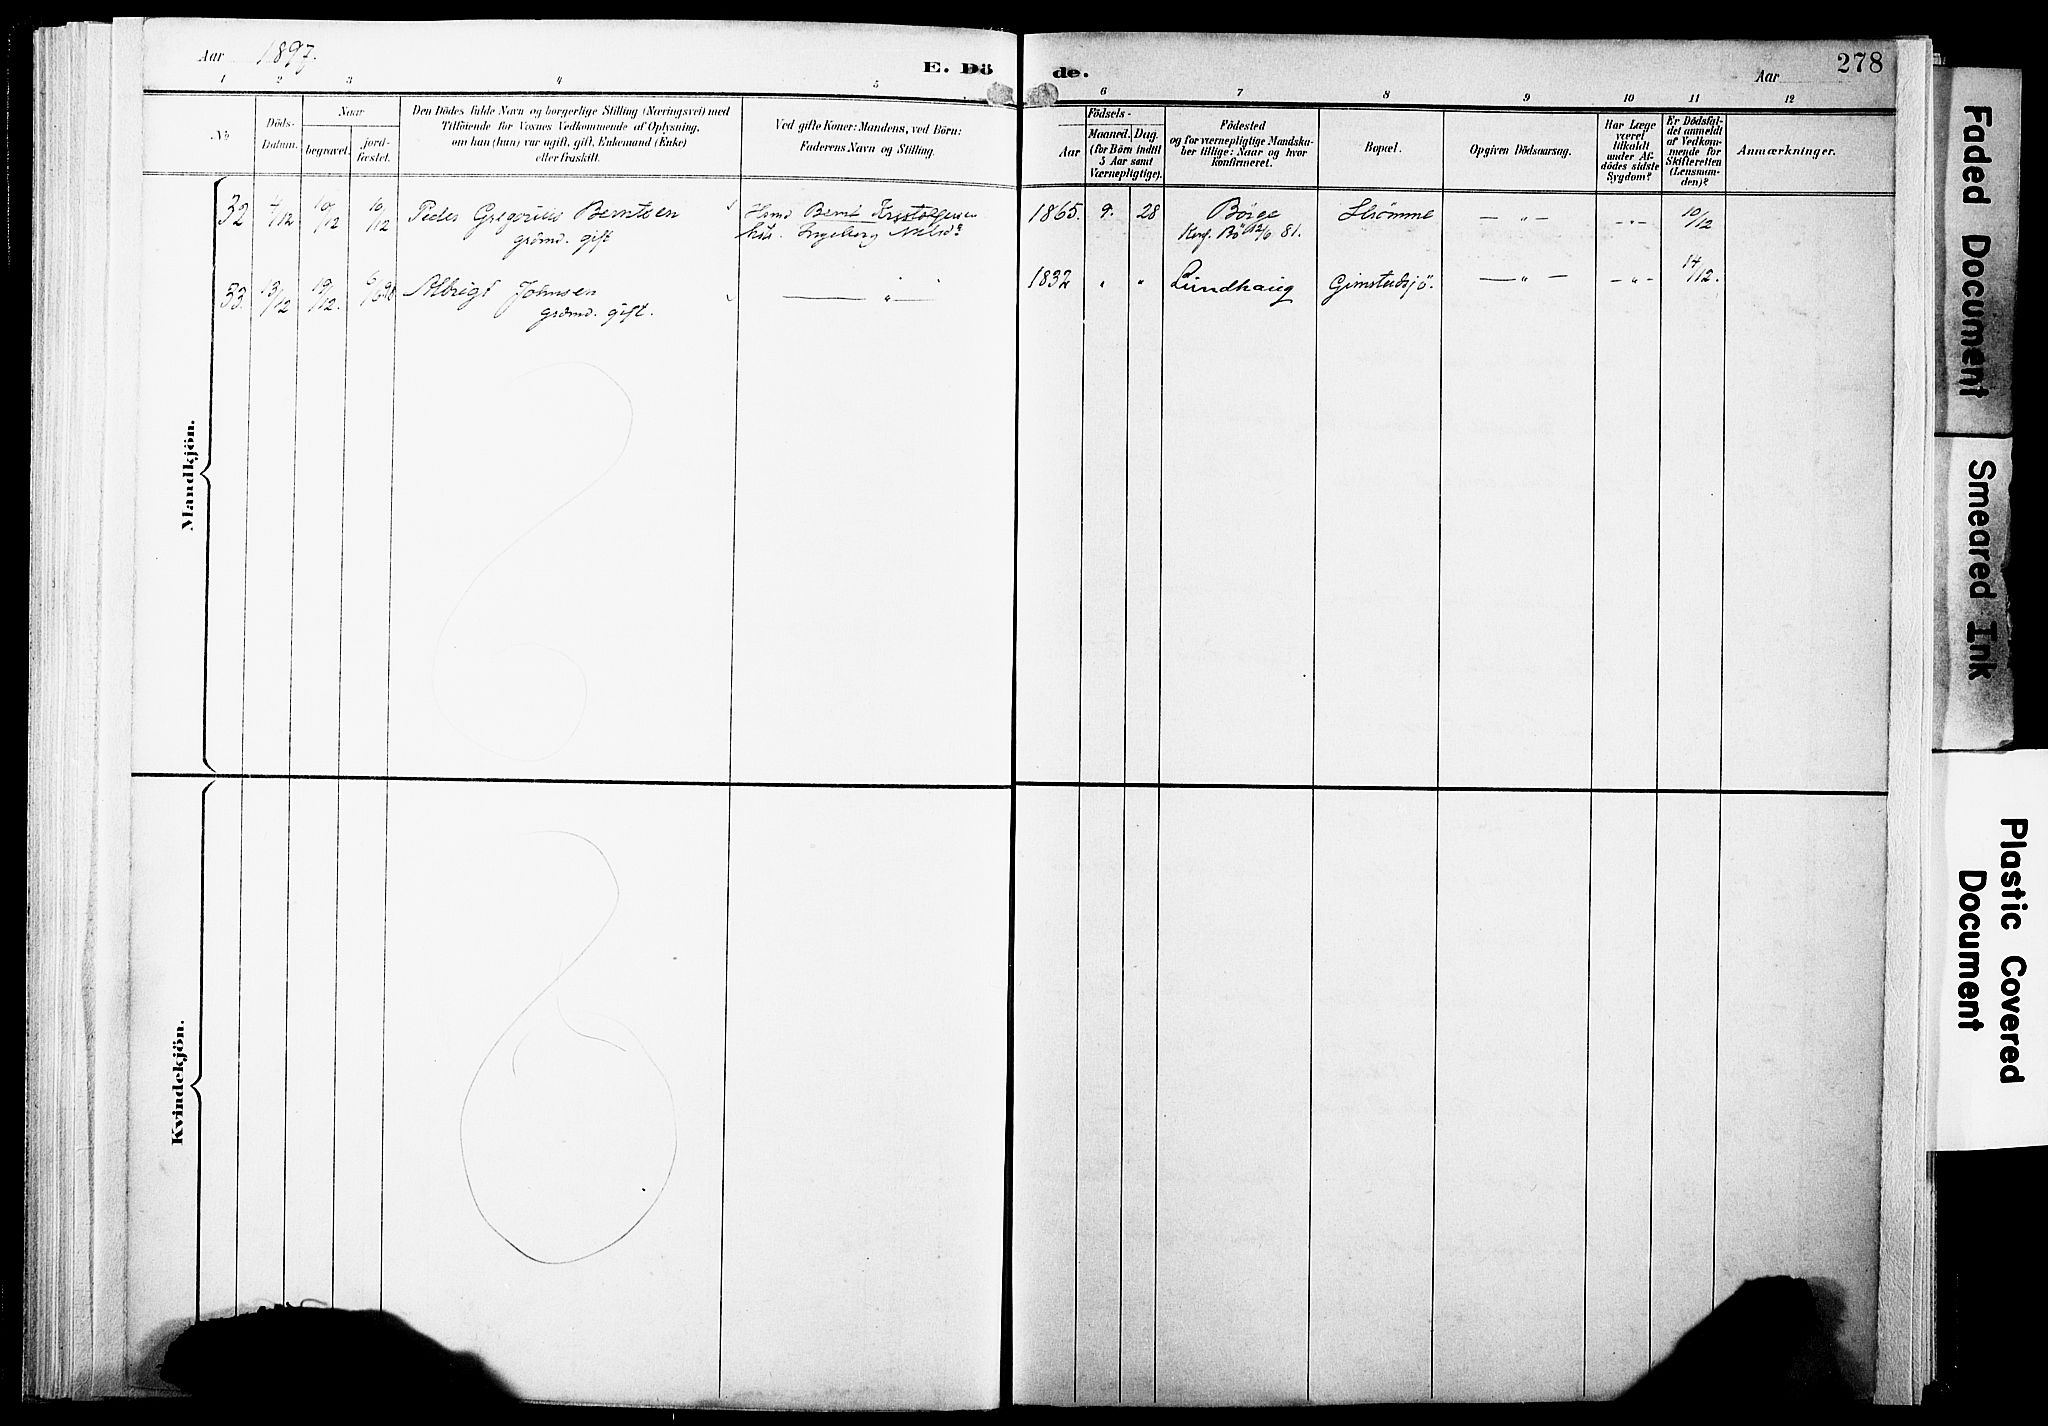 Aar 1897.
E. Dö
de.
Aar
278
1 2 3 4 5 6 7 8 9 10 11 12
No
Döds-
Datum.
Naar
begravet.
jord-
fæstet.
Den Dödes fulde Navn og borgerlige Stilling (Næringsvei) med
Tilföiende for Voxnes Vedkommende af Oplysning,
om han (hun) var ugift, gift, Enkemand (Enke)
eller fraskilt.
Ved gifte Koner: Mandens, ved Börn:
Faderens Navn og Stilling.
Födsels-
Aar
Maaned. Dag.
(for Börn indtil
5 Aar samt
Værnepligtige).
Födested
og for værnepligtige Mandska-
ber tillige: Naar og hvor
konfirmeret.
Bopæl.
Opgiven Dödsaarsag.
Har Læge
været
tilkaldt
under Af-
dödes sidste
Sygdom?
Er Dödsfal-
det anmeldt
af Vedkom-
mende for
Skifteretten
(Lensman-
den)?
Anmærkninger.
Mandkjön.
32 4/12 10/12 10/12 Peder Gregorius Berntsen
grdmd. gift
Bernt
Ingeborg
1865. 9. 28 Börge
Konf. Bö 81.
Strömme — „ — -„- 10/12
33. 13/12 19/12. 6/6 98 Albrigt Johnsen
grdmd. gift.
— „ —
1832 „ „ Lundhaug Gimstadsjö. — „ — -„- 14/12.
Kvindekjön.
Faded Document
Smeared Ink
Plastic Covered
Document